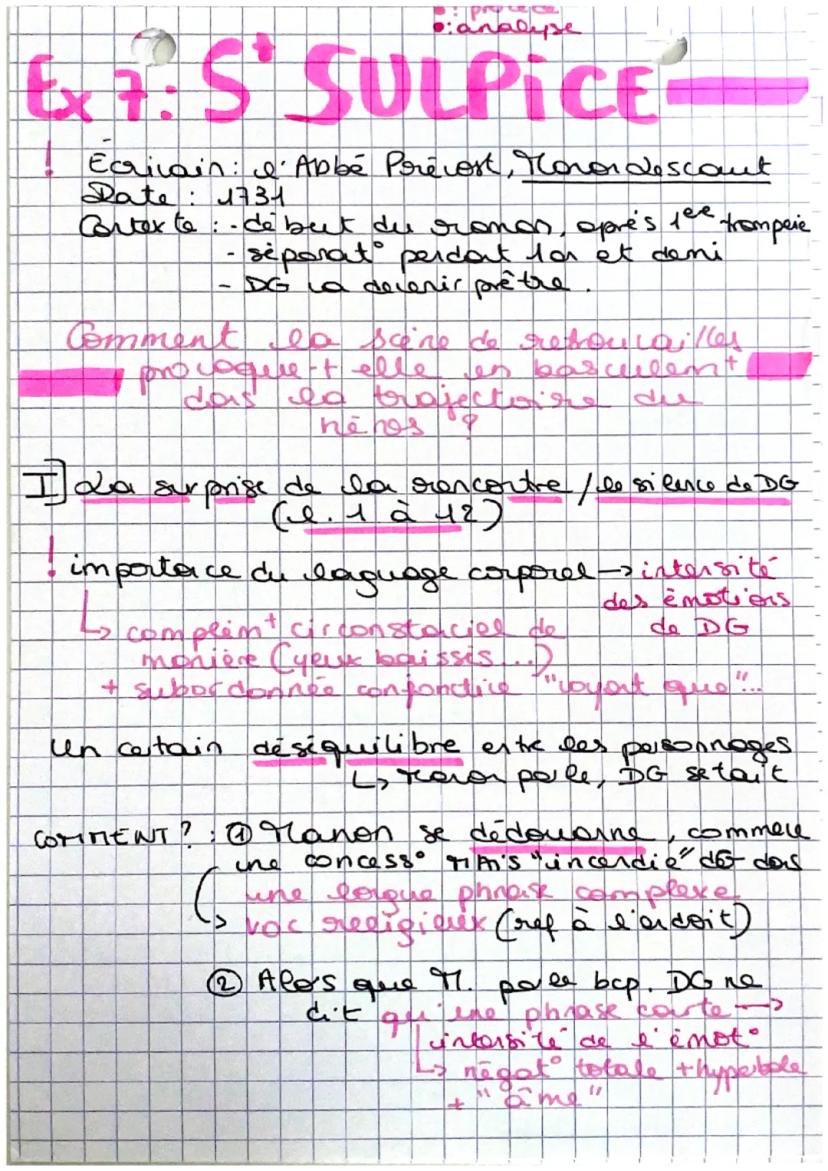 : procédé
: analyse
Ex 7: St SULPiCE
! Écrivain: l'Abbé Prévost, Manon Lescaut
Date : 1731
Contexte : - début du roman, après 1ère tromperie
- séparat° pendant 1 an et demi
- DG va devenir prêtre.
Comment la scène de retrouvailles
provoque-t elle un basculemt
dans la trajectoire du
héros ?
I] La surprise de la rencontre / le silence de DG
(l. 1 à 12)
! importance du language corporel → intensité
des émotions
↳ complémt circonstanciel de de DG
manière (yeux baissés...)
+ subordonnée conjonctive "voyant que"...
Un certain déséquilibre entre les personnages
↳ Manon parle, DG se tait
COMMENT ? : ① Manon se dédouane, commence
une concess° MAIS "incendie" DG dans
une longue phrase complexe
↳ voc religieux (ref à l'endroit)
② Alors que M. parle bcp. DG ne
dit qu'une phrase courte →
intensité de l'émot°
↳ négat° totale + hyperbole
+ "âme"